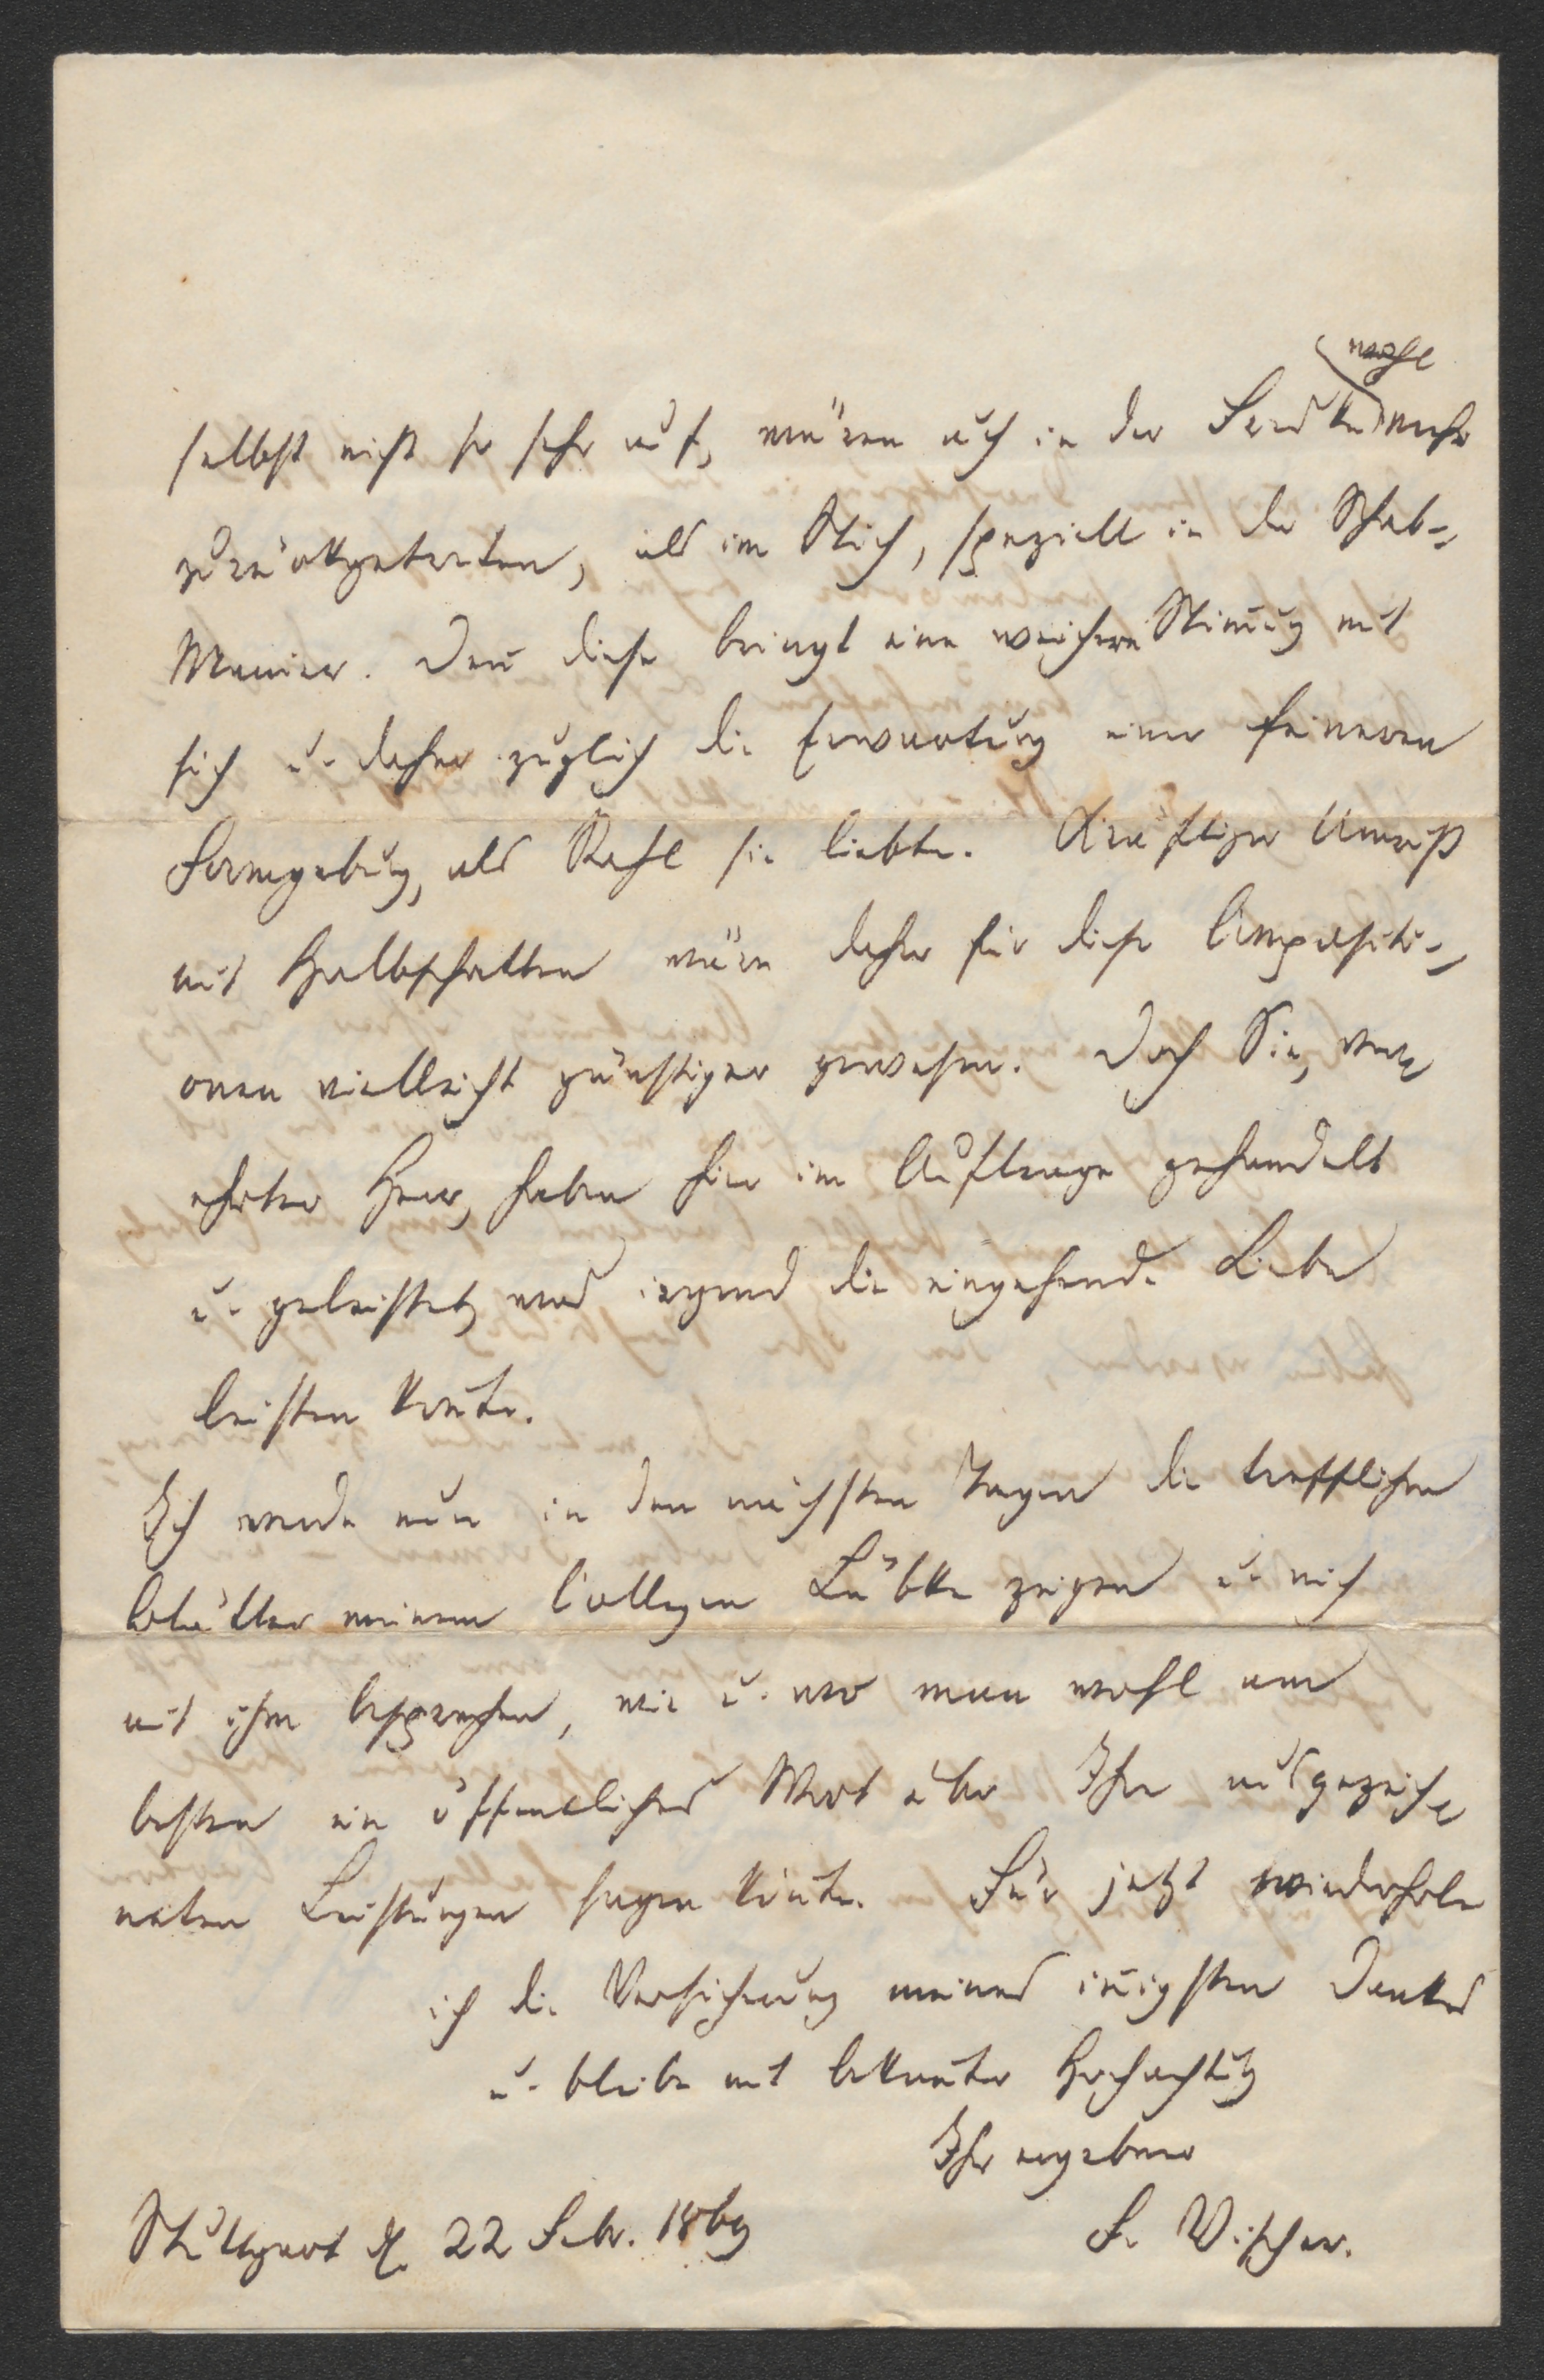 wohl
selbst nicht so sehr auf, wären auch in der Freske mehr
zurückgetreten, als im Stich, speziell in der Schab-
Manier. Deñ diese bringt eine weichere Stim̃ung mit
sich u. daher zugleich die Erwartung einer feineren
Formgebung, als Rahl sie liebte. Kräftiger Umriß
mit Halbschatten wäre daher für diese Compositi-
onen vielleicht günstiger gewesen. Doch Sie, ver-
ehrter Herr, haben hier im Auftrage gehandelt
u. geleistet, was irgend die eingehende Liebe
leisten koñte.
Ich werde nun in den nächsten Tagen die trefflichen
Blätter meinem Collegen Lübke zeigen u. mich
mit ihm besprechen, wie u. wo man wohl am
besten ein öffentliches Wort über Ihre ausgezeich-
neten Leistungen sagen köñte. Für jetzt wiederhole
ich die Versicherung meines iñigsten Dankes
u. bleibe mit bekañter Hochachtung
Ihr ergebener
Stuttgart d. 22 Febr. 1869 F. Vischer.